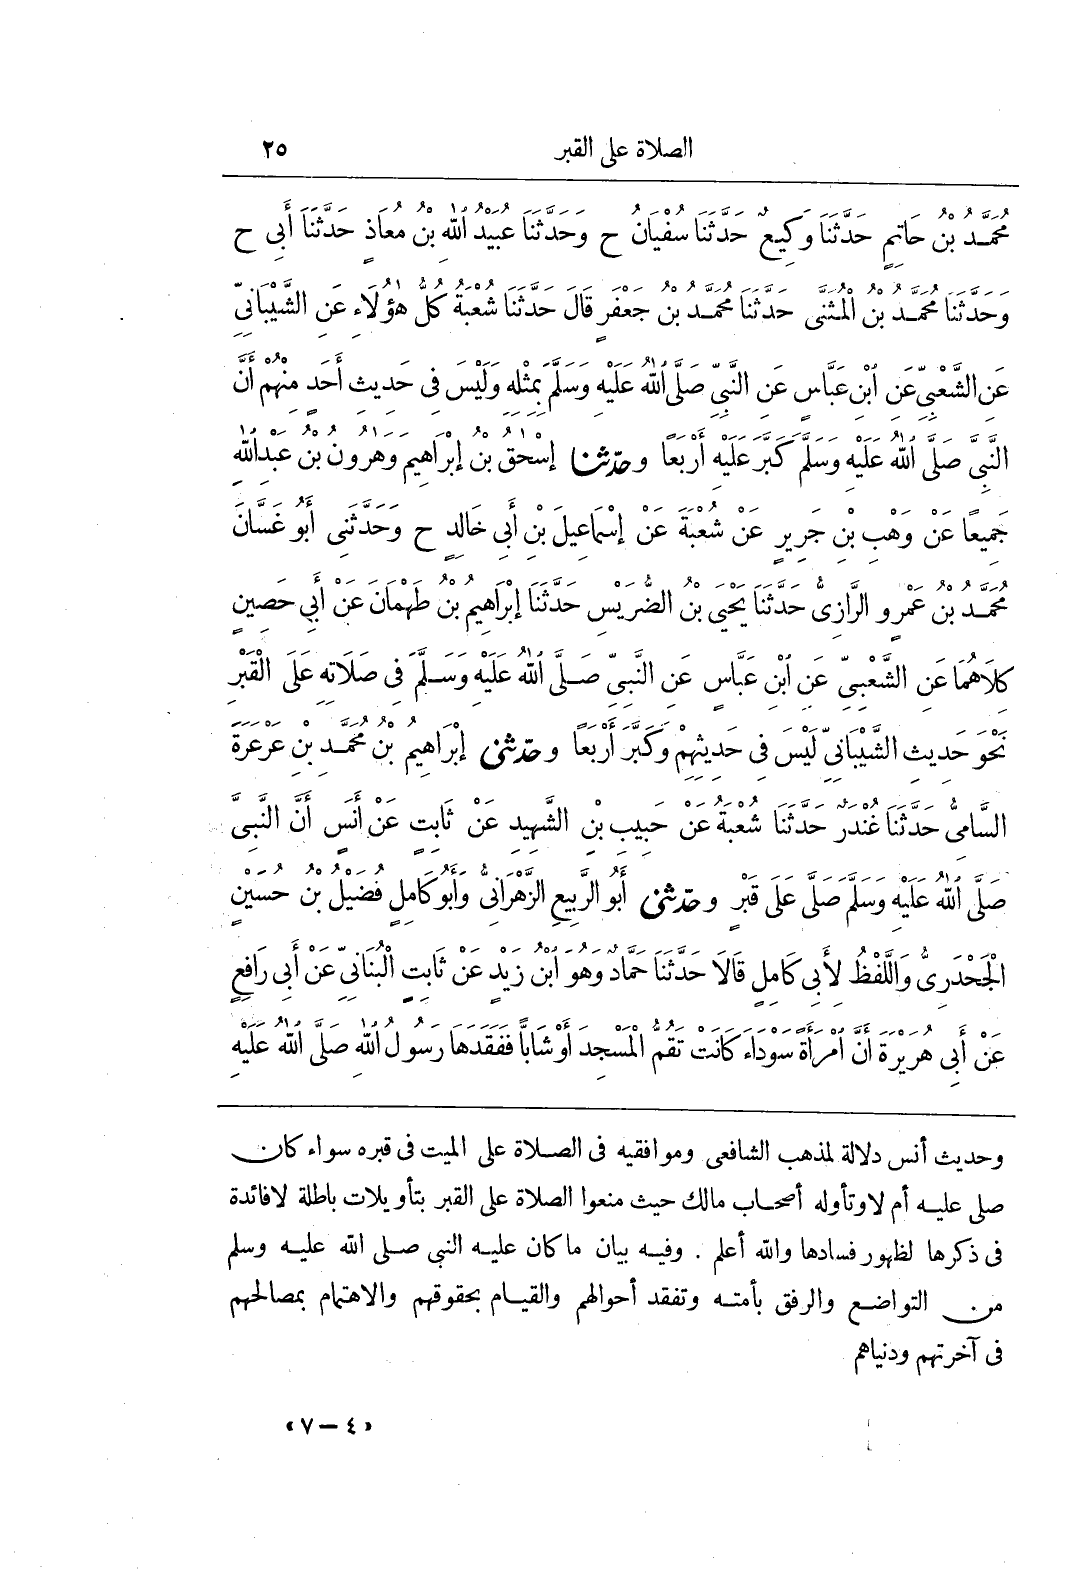 الصلاة على القبر ٢٥
مُحَمَّدُ بْنُ حَاتِمٍ حَدَّثَنَا وَكِيعٌ حَدَّثَنَا سُفْيَانُ ح وَحَدَّثَنَا عُبَيْدُ اللهِ بْنُ مُعَاذٍ حَدَّثَنَا أَبِي ح
وَحَدَّثَنَا مُحَمَّدُ بْنُ الْمُثَنَّى حَدَّثَنَا مُحَمَّدُ بْنُ جَعْفَرٍ قَالَ حَدَّثَنَا شُعْبَةُ كُلُّ هَؤُلَاءِ عَنِ الشَّيْبَانِيِّ
عَنِ الشَّعْبِيِّ عَنِ ابْنِ عَبَّاسٍ عَنِ النَّبِيِّ صَلَّى اللهُ عَلَيْهِ وَسَلَّمَ بِمِثْلِهِ وَلَيْسَ فِي حَدِيثِ أَحَدٍ مِنْهُمْ أَنَّ
النَّبِيَّ صَلَّى اللهُ عَلَيْهِ وَسَلَّمَ كَبَّرَ عَلَيْهِ أَرْبَعًا وحدثنا إِسْحَقُ بْنُ إِبْرَاهِيمَ وَهَرُونُ بْنُ عَبْدِ اللهِ
جَمِيعًا عَنْ وَهْبِ بْنِ جَرِيرٍ عَنْ شُعْبَةَ عَنْ إِسْمَاعِيلَ بْنِ أَبِي خَالِدٍ ح وَحَدَّثَنِي أَبُو غَسَّانَ
مُحَمَّدُ بْنُ عَمْرٍو الرَّازِيُّ حَدَّثَنَا يَحْيَى بْنُ الضُّرَيْسِ حَدَّثَنَا إِبْرَاهِيمُ بْنُ طَهْمَانَ عَنْ أَبِي حَصِينٍ
كِلَاهُمَا عَنِ الشَّعْبِيِّ عَنِ ابْنِ عَبَّاسٍ عَنِ النَّبِيِّ صَلَّى اللهُ عَلَيْهِ وَسَلَّمَ فِي صَلَاتِهِ عَلَى الْقَبْرِ
نَحْوَ حَدِيثِ الشَّيْبَانِيِّ لَيْسَ فِي حَدِيثِهِمْ وَكَبَّرَ أَرْبَعًا وحدثني إِبْرَاهِيمُ بْنُ مُحَمَّدِ بْنِ عَرْعَرَةَ
السَّامِيُّ حَدَّثَنَا غُنْدَرٌ حَدَّثَنَا شُعْبَةُ عَنْ حَبِيبِ بْنِ الشَّهِيدِ عَنْ ثَابِتٍ عَنْ أَنَسٍ أَنَّ النَّبِيَّ
صَلَّى اللهُ عَلَيْهِ وَسَلَّمَ صَلَّى عَلَى قَبْرٍ وحدثني أَبُو الرَّبِيعِ الزَّهْرَانِيُّ وَأَبُو كَامِلٍ فُضَيْلُ بْنُ حُسَيْنٍ
الْجَحْدَرِيُّ وَاللَّفْظُ لِأَبِي كَامِلٍ قَالَا حَدَّثَنَا حَمَّادٌ وَهُوَ ابْنُ زَيْدٍ عَنْ ثَابِتٍ الْبُنَانِيِّ عَنْ أَبِي رَافِعٍ
عَنْ أَبِي هُرَيْرَةَ أَنَّ امْرَأَةً سَوْدَاءَ كَانَتْ تَقُمُّ الْمَسْجِدَ أَوْ شَابًّا فَفَقَدَهَا رَسُولُ اللهِ صَلَّى اللهُ عَلَيْهِ
وحديث أنس دلالة لمذهب الشافعى وموافقيه فى الصلاة على الميت فى قبره سواء كان
صلى عليه أم لا وتأوله أصحاب مالك حيث منعوا الصلاة على القبر بتأويلات باطلة لا فائدة
فى ذكرها لظهور فسادها والله أعلم . وفيه بيان ما كان عليه النبى صلى الله عليه وسلم
من التواضع والرفق بأمته وتفقد أحوالهم والقيام بحقوقهم والاهتمام بمصالحهم
فى آخرتهم ودنياهم
«٤ – ٧»